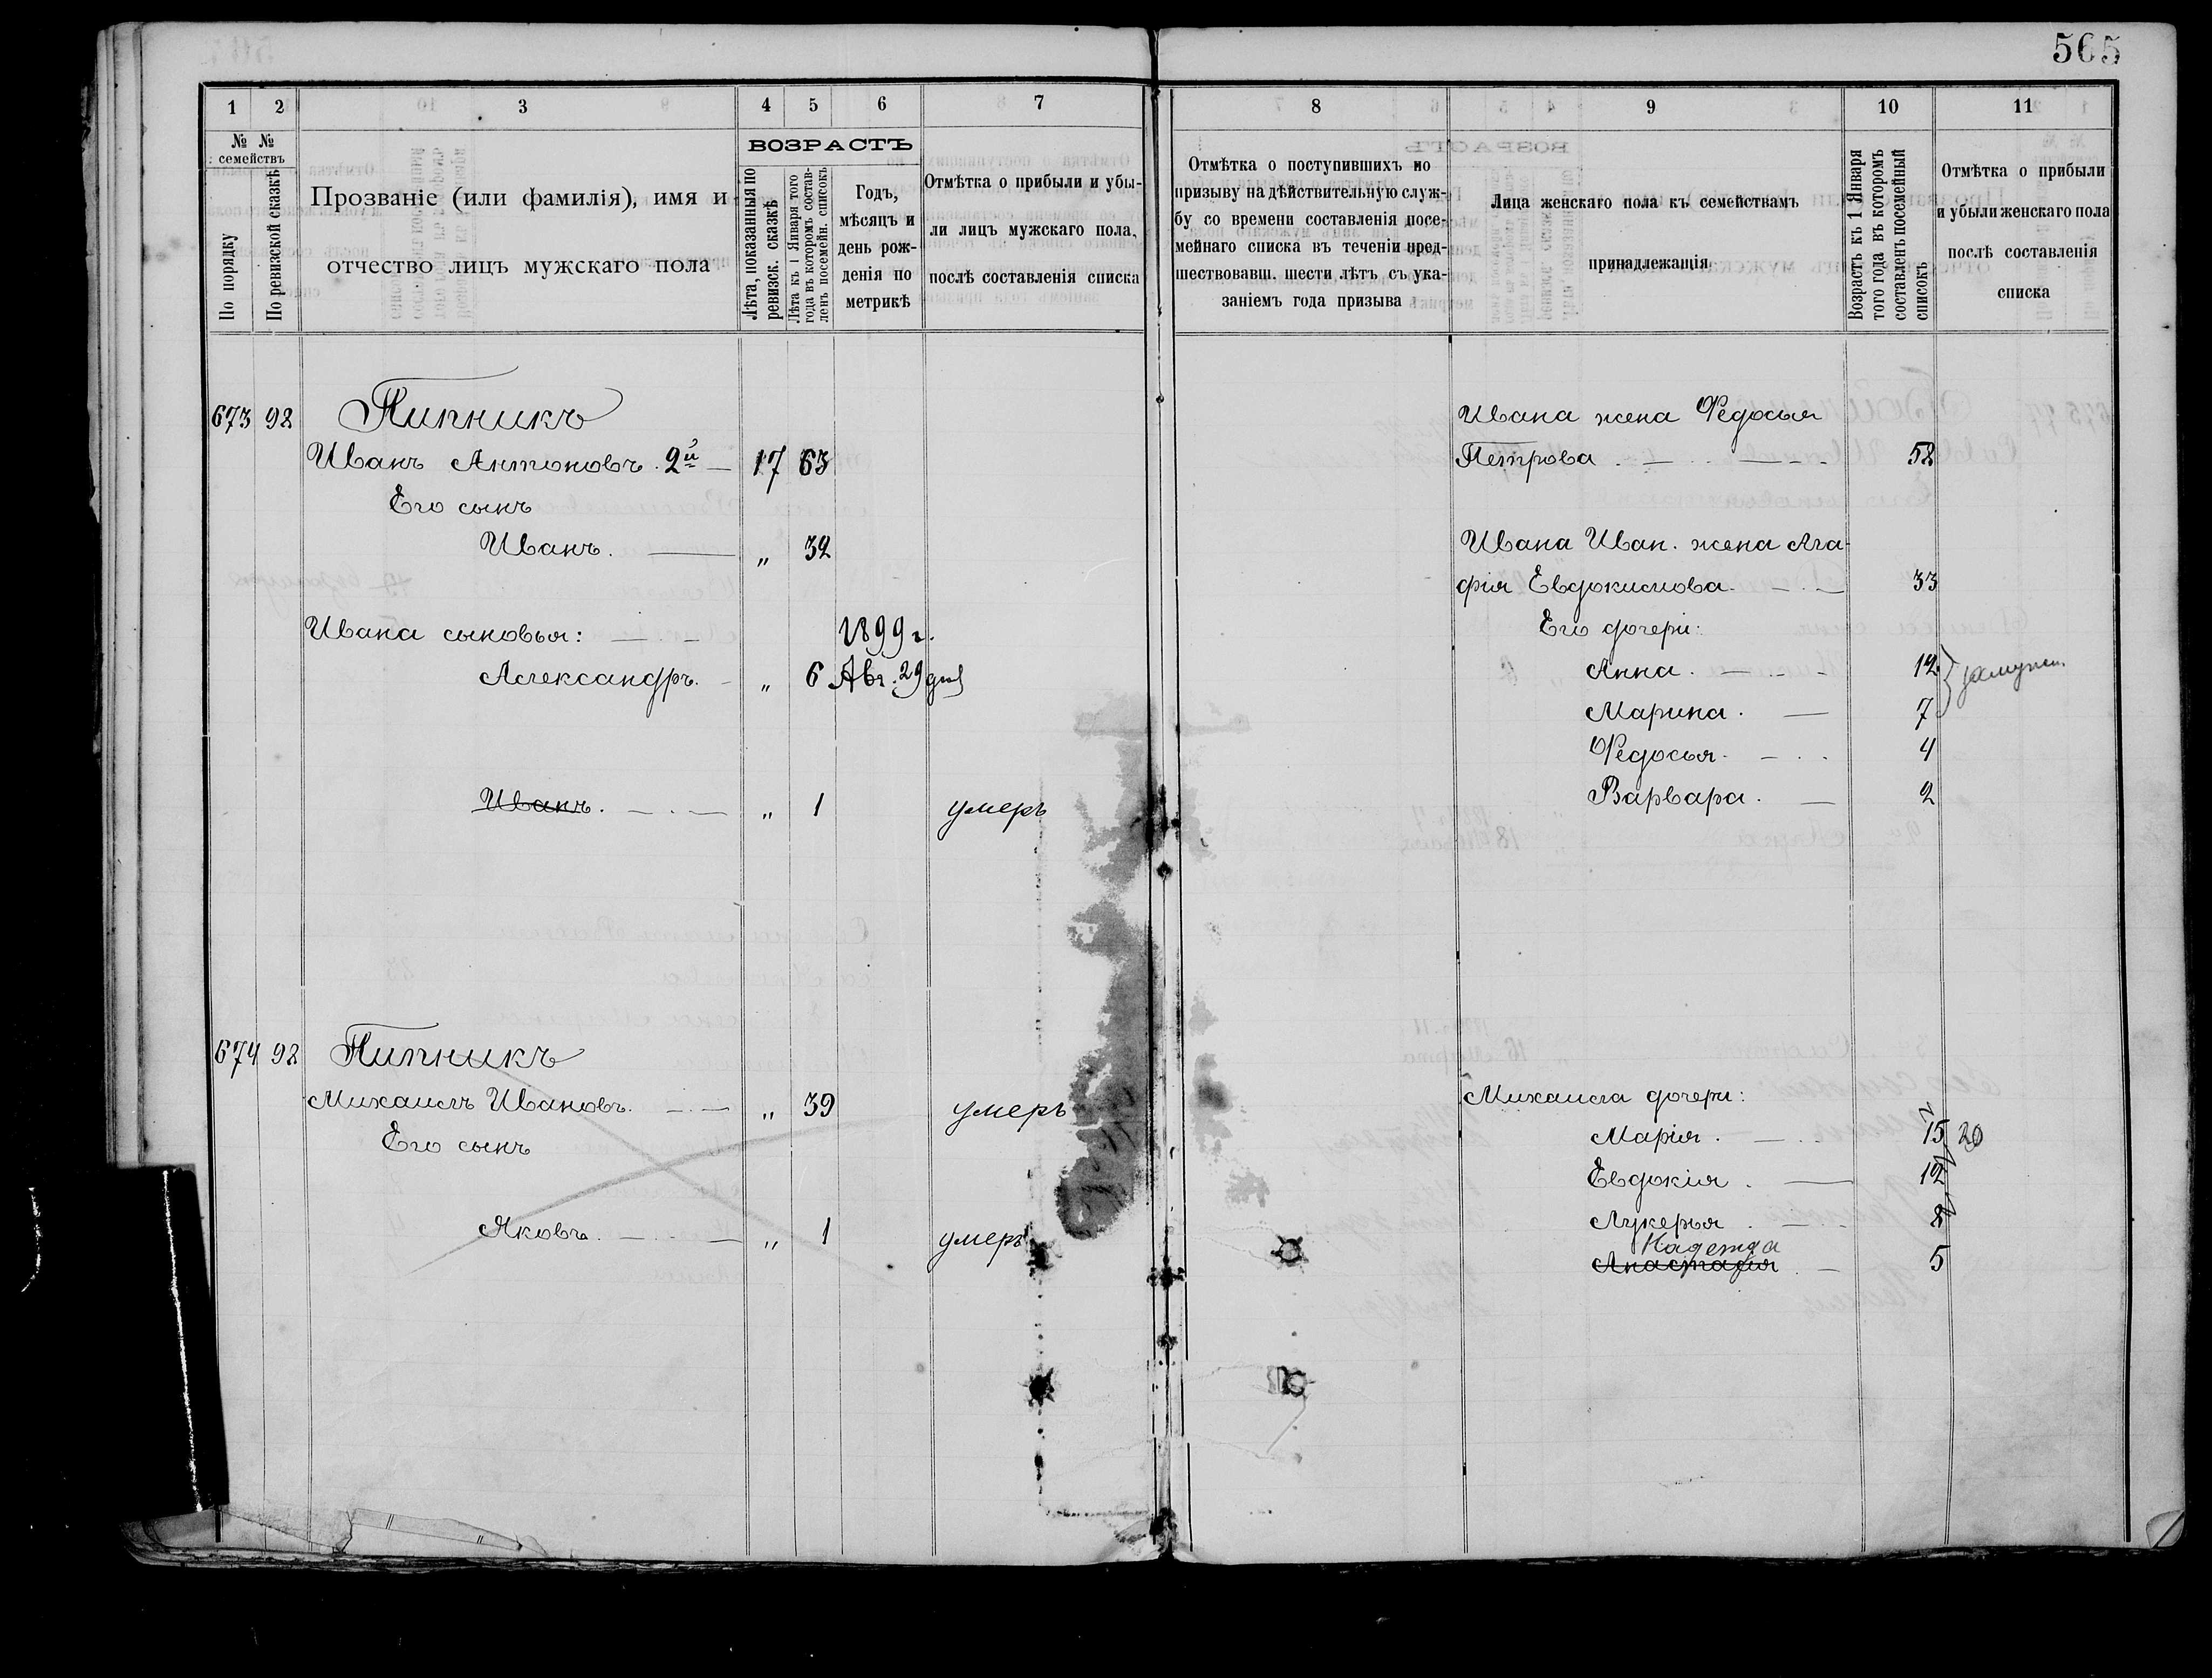 565
1 2 3 4 5 6 7
№ № семействъ
По порядку
По ревизской сказкѣ
Прозваніе (или фамилія), имя и
отчество лицъ мужскаго пола
ВОЗРАСТЪ
Лѣта, показанныя по
ревизск. сказкѣ
Лѣта къ 1 Января того
года въ которомъ состав-
ленъ посемейн. списокъ
Годъ,
мѣсяцъ и
день рож-
денія по
метрикѣ
Отмѣтка о прибыли и убы-
ли лицъ мужскаго пола,
послѣ составленія списка
673 92 Пипникъ
Иванъ Антоновъ 2й 17 63
Его сынъ
Иванъ. „ 32
Ивана сыновья: 1899 г.
Александръ. „ 6 Авг. 29 дня
Иванъ. „ 1 умеръ
674 92 Пипникъ
Михаилъ Ивановъ. „ 39 умеръ
Его сынъ
Яковъ. „ 1 умеръ
8 9 10 11
Отмѣтка о поступившихъ по
призыву на дѣйствительную служ-
бу со времени составленія посе-
мейнаго списка въ теченіи пред-
шествовавш. шести лѣтъ съ ука-
заніемъ года призыва
Лица женскаго пола къ семействамъ
принадлежащія
Возрастъ къ 1 Января
того года въ которомъ
составленъ посемейный
списокъ
Отмѣтка о прибыли
и убыли женскаго пола
послѣ составленія
списка
Ивана жена Федосья
Петрова 58
Ивана Иван. жена Ага-
фія Евдокимова. 33
Его дочери:
Анна. 12 замужем
Марина. 7
Федосья. 4
Варвара. 2
Михаила дочери:
Марія. 15 20
Евдокія. 12
Лукерья. 8
Надежда
Анастасія 5